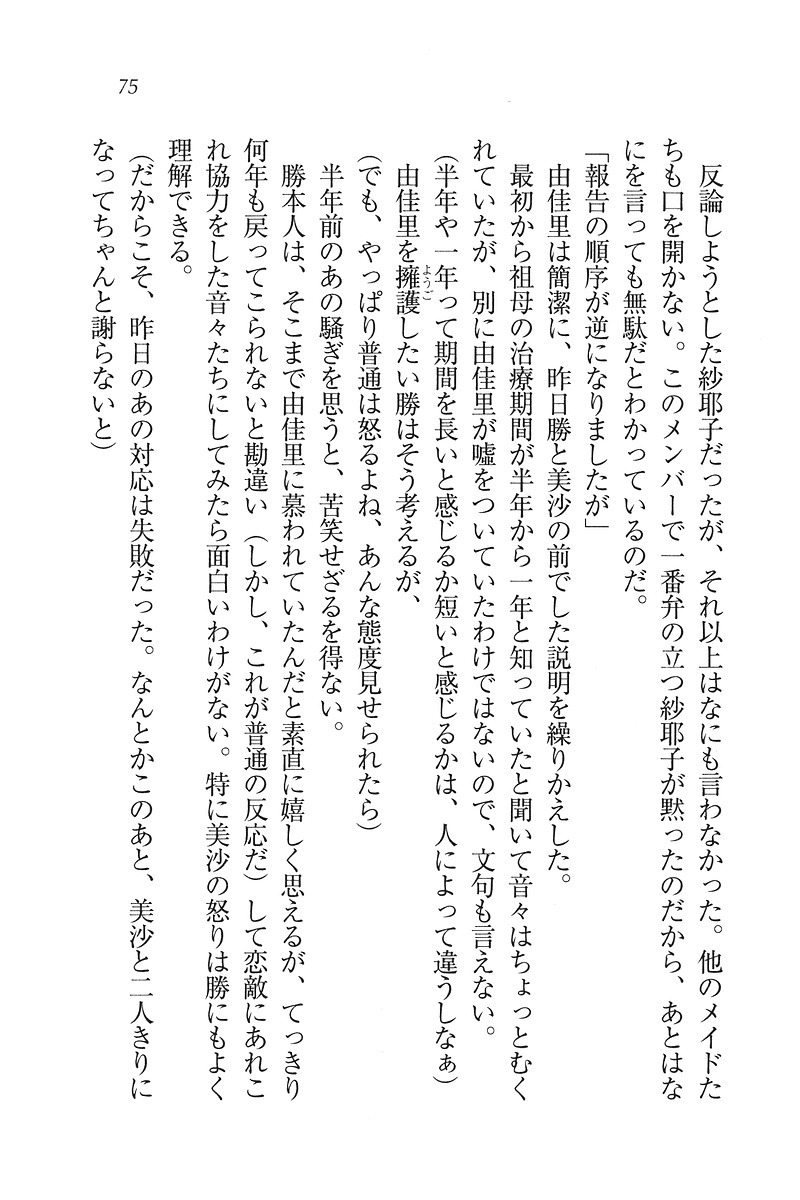 75
反論しようとした紗耶子だったが、それ以上はなにも言わなかった。他のメイドた
ちも口を開かない。このメンバーで一番弁の立つ紗耶子が黙ったのだから、あとはな
にを言っても無駄だとわかっているのだ。
「報告の順序が逆になりましたが」
由佳里は簡潔に、昨日勝と美沙の前でした説明を繰りかえした。
最初から祖母の治療期間が半年から一年と知っていたと聞いて音々はちょっとむく
れていたが、別に由佳里が嘘をついていたわけではないので、文句も言えない。
(半年や一年って期間を長いと感じるか短いと感じるかは、人によって違うしなぁ)
由佳里を擁護したい勝はそう考えるが、
ようご
(でも、やっぱり普通は怒るよね、あんな態度見せられたら)
半年前のあの騒ぎを思うと、苦笑せざるを得ない。
勝本人は、そこまで由佳里に慕われていたんだと素直に嬉しく思えるが、てっきり
何年も戻ってこられないと勘違い(しかし、これが普通の反応だ)して恋敵にあれこ
れ協力をした音々たちにしてみたら面白いわけがない。特に美沙の怒りは勝にもよく
理解できる。
(だからこそ、昨日のあの対応は失敗だった。なんとかこのあと、美沙と二人きりに
なってちゃんと謝らないと)